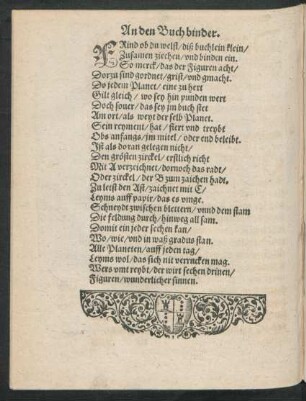 An den Buchbinder.
FRind ob du welst / diß buchlein klein /
Zusamen ziechen / vnd binden ein.
So merck / das der Figuren acht /
Dorzu sind gordnet / grist / vnd gmacht.
Do jedem Planet / eine zu hert
Gilt gleich / wo sey hin punden wert
Doch souer / das sey jm buch stet
Am ort / als weyt der selb Planet.
Sein reyment / hat / stert vnd treybt
Obs anfangs / im mitel / oder end beleibt.
Ist als doran gelegen nicht /
Den grösten zirckel / erstlich richt
Mit A verzeichnet / dornoch das radt /
Oder zirckel / der B zum zaichen hadt,
Zu lest den Ast / zaichnet mit C /
Leyms auff papir / das es vmge.
Schneydt zwischen blettern / vnnd dem stam
Die feldung durch / hinweg all sam.
Domit ein jeder sechen kan /
Wo / wie / vnd in waß gradus stan.
Alle Planeten / auff jeden tag /
Leyms wol / das sich nit verrucken mag.
Wers vmtreybt / der wirt sechen drinen /
Figuren / wunderlicher sinnen.